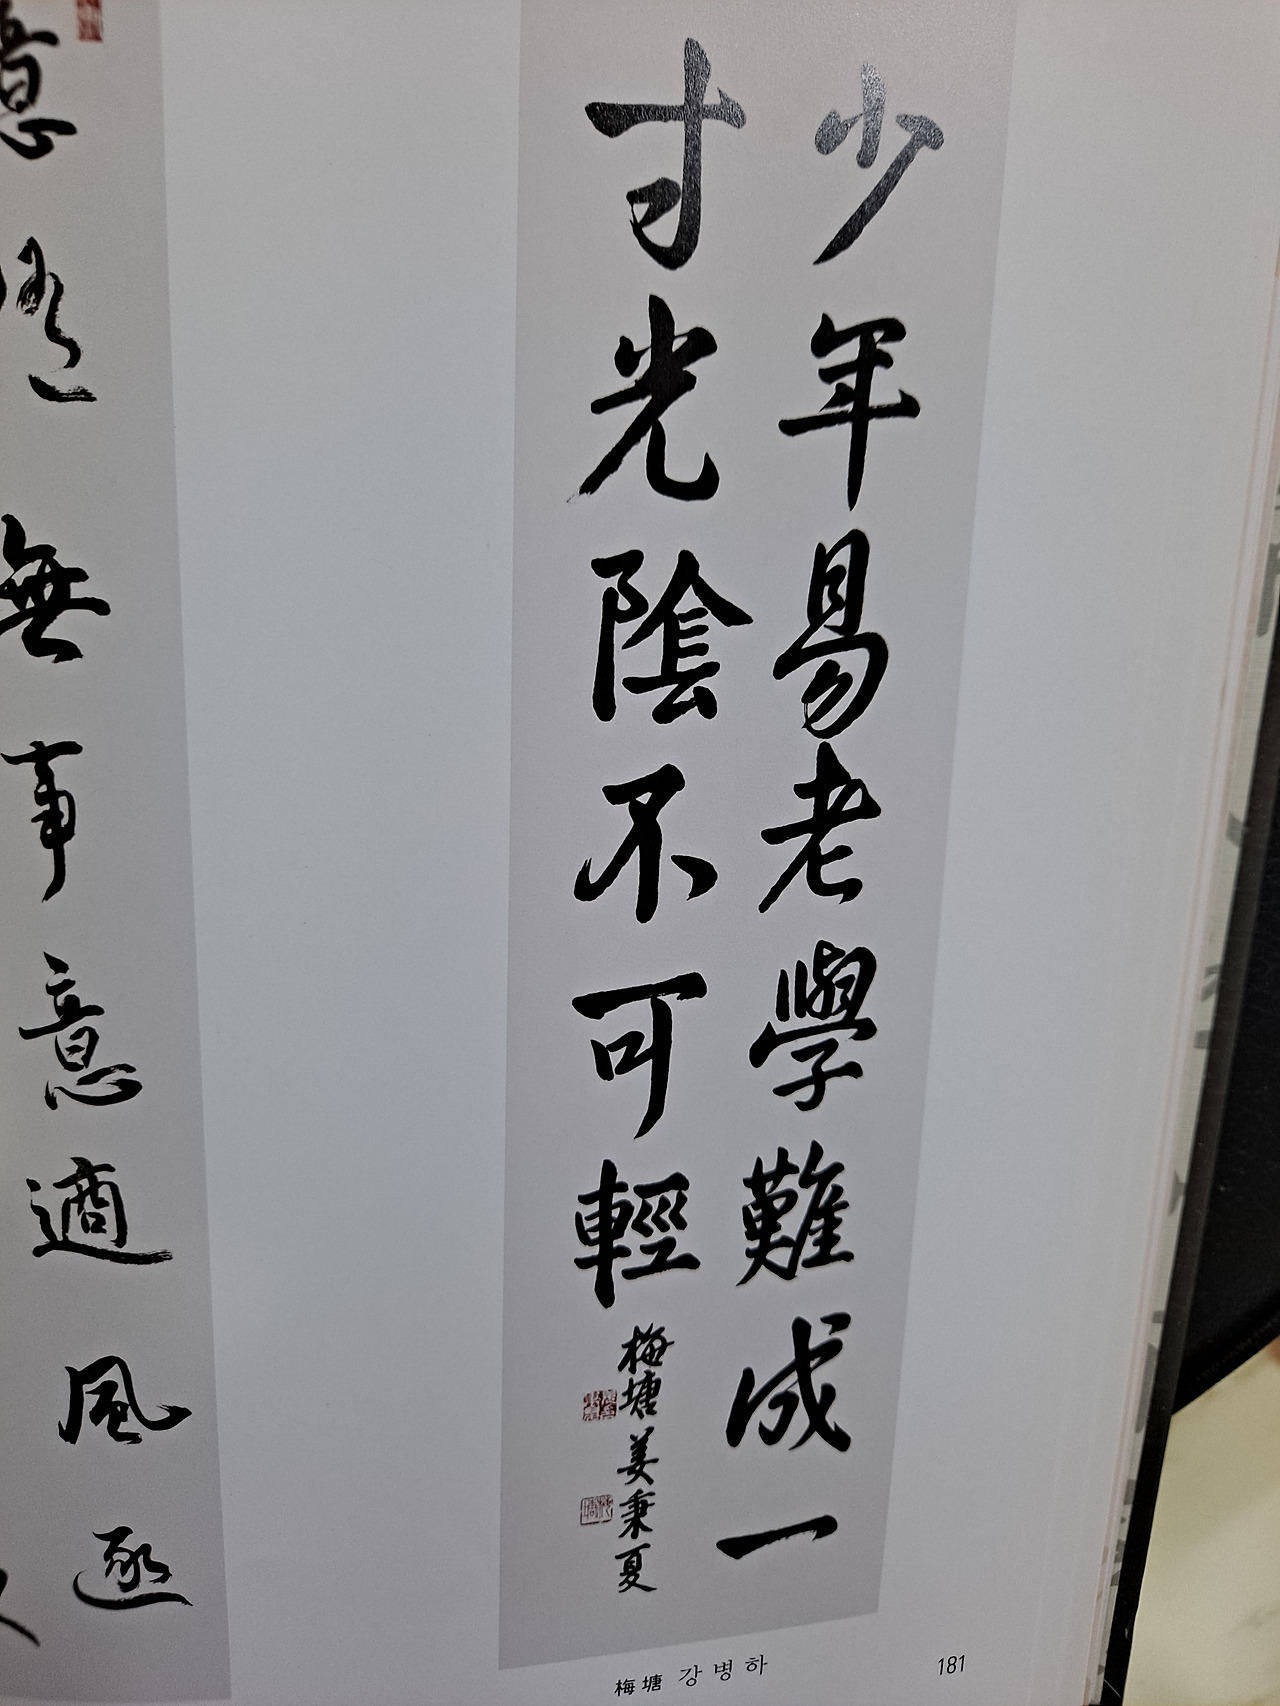 少年易老學難成一
寸光陰不可輕
梅塘 姜秉夏
意
無事意適風
梅塘 강병하
181